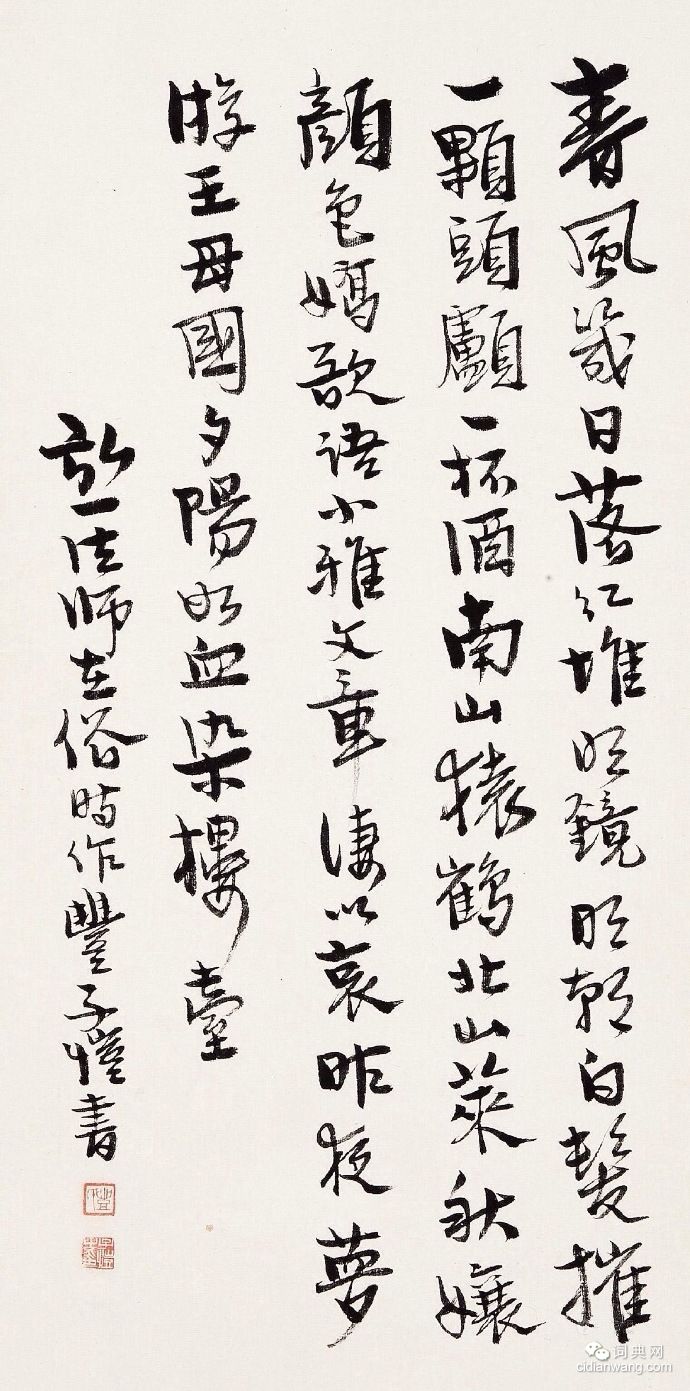 春風幾日落紅堆明鏡明朝白髮摧
一顆頭顱一杯酒南山猿鶴北山萊秋孃
顔色嬌欲語小雅文章淒以哀昨夜夢
游王母國夕陽如血染樓臺
弘一法師在俗時作豐子愷書
词典网
cidianwang.com